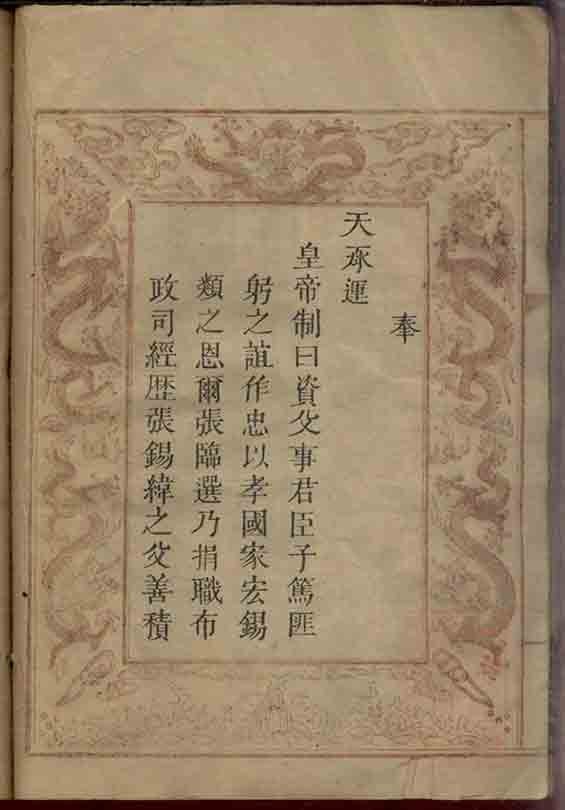 奉
天承運
皇帝制曰資父事君臣子篤匪
躬之誼作忠以孝國家宏錫
類之恩爾張臨選乃捐職布
政司經歷張錫緯之父善積